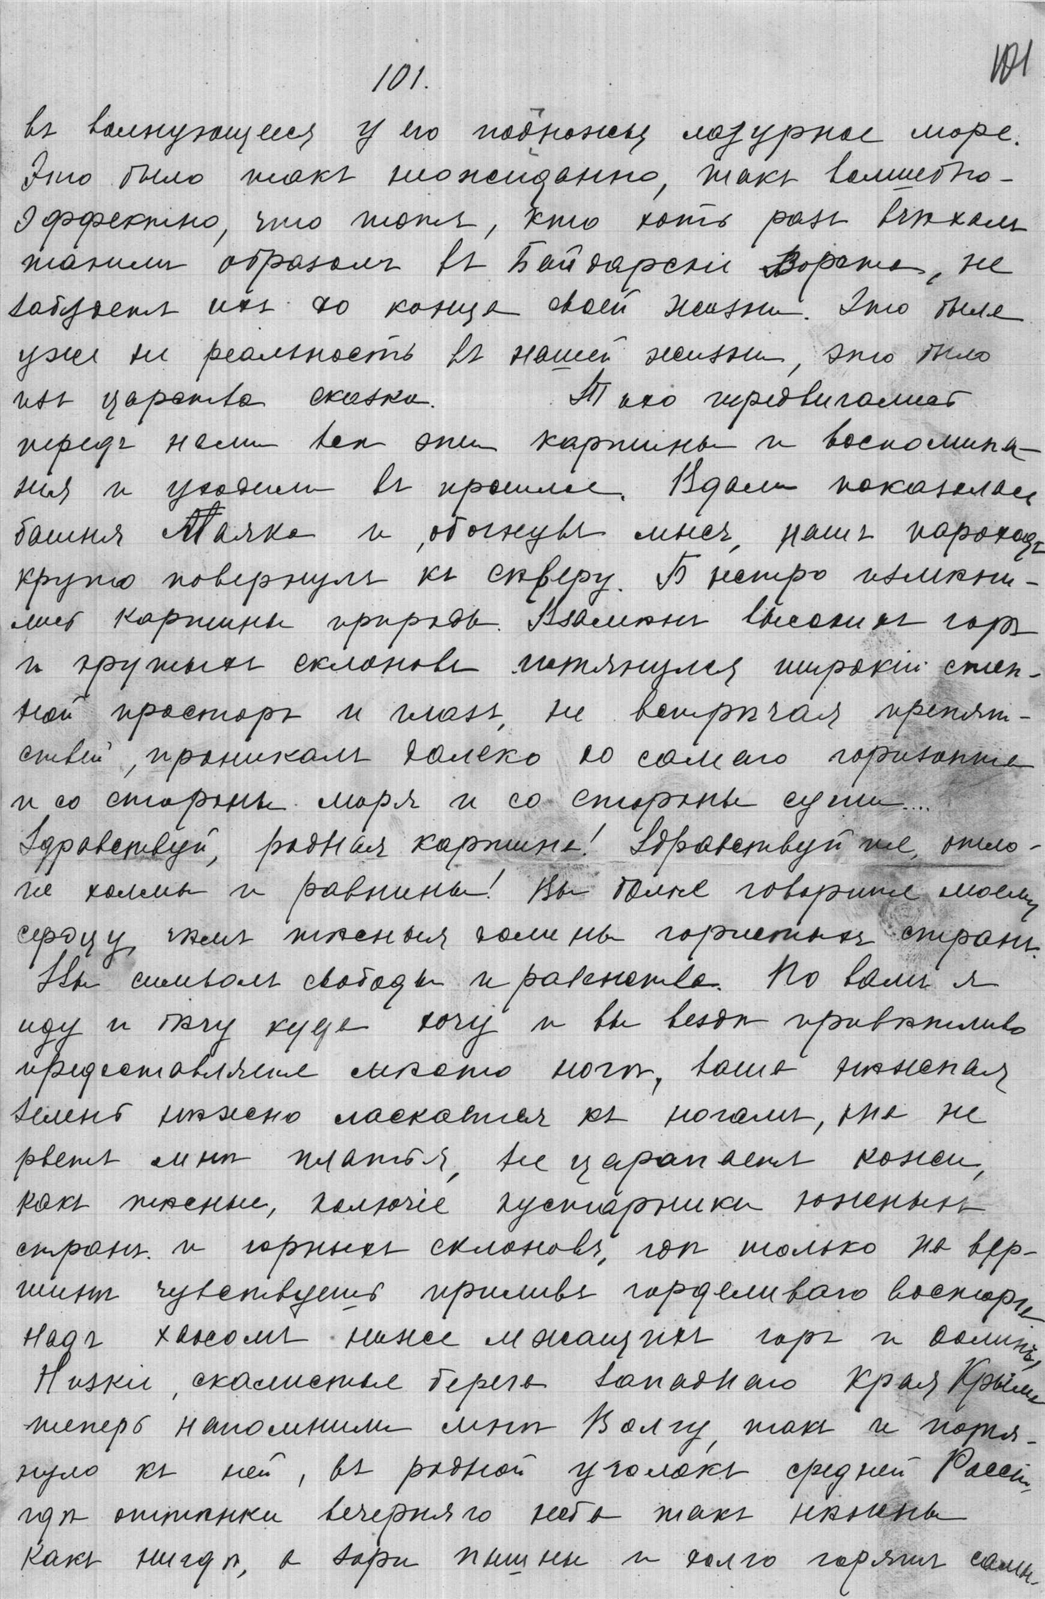 101.
101
въ волнующееся у его подножья лазурное море.
Это было такъ неожиданно, такъ волшебно-
эффектно, что тотъ, кто хоть разъ въѣхалъ
такимъ образомъ въ Байдарскіе Ворота, не
забудетъ ихъ до конца своей жизни. Это была
уже не реальность въ нашей жизни, это было
изъ царства сказки. Тихо передвигались
передъ нами всѣ эти картины и воспомина-
нія и уходили въ прошлое. Вдали показалась
башня Маяка и, обогнувъ мысъ, нашъ пароходъ
круто повернулъ къ сѣверу. Быстро измѣни-
лись картины природы. Взамѣнъ высокихъ горъ
и крутыхъ склоновъ потянулся широкій степ-
ной просторъ и глазъ, не встрѣчая препят-
ствій, проникалъ далеко до самаго горизонта
и со стороны моря и со стороны суши....
Здравствуй, родная картина! Здравствуйте, отло-
гіе холмы и равнины! Вы болѣе говорите моему
сердцу, чѣмъ тѣсныя долины гористыхъ странъ.
Вы символъ свободы и равенства. По вамъ я
иду и бѣгу куда хочу и вы вездѣ привѣтливо
предоставляете мѣсто ногѣ, ваша нѣжная
зелень нѣжно ласкается къ ногамъ, она не
рветъ мнѣ платья, не царапаетъ кожи,
какъ тѣсные, колючіе кустарники южныхъ
странъ и горныхъ склоновъ, гдѣ только на вер-
шинѣ чувствуешь приливъ горделиваго восторга
надъ хаосомъ ниже лежащихъ горъ и долинъ,
Низкіе, скалистые берега западнаго края Крыма
теперь напомнили мнѣ Волгу, такъ и потя-
нуло къ ней, въ родной уголокъ средней Россіи,
гдѣ оттѣнки вечерняго неба такъ нѣжны
какъ нигдѣ, а зари пышны и долго горятъ